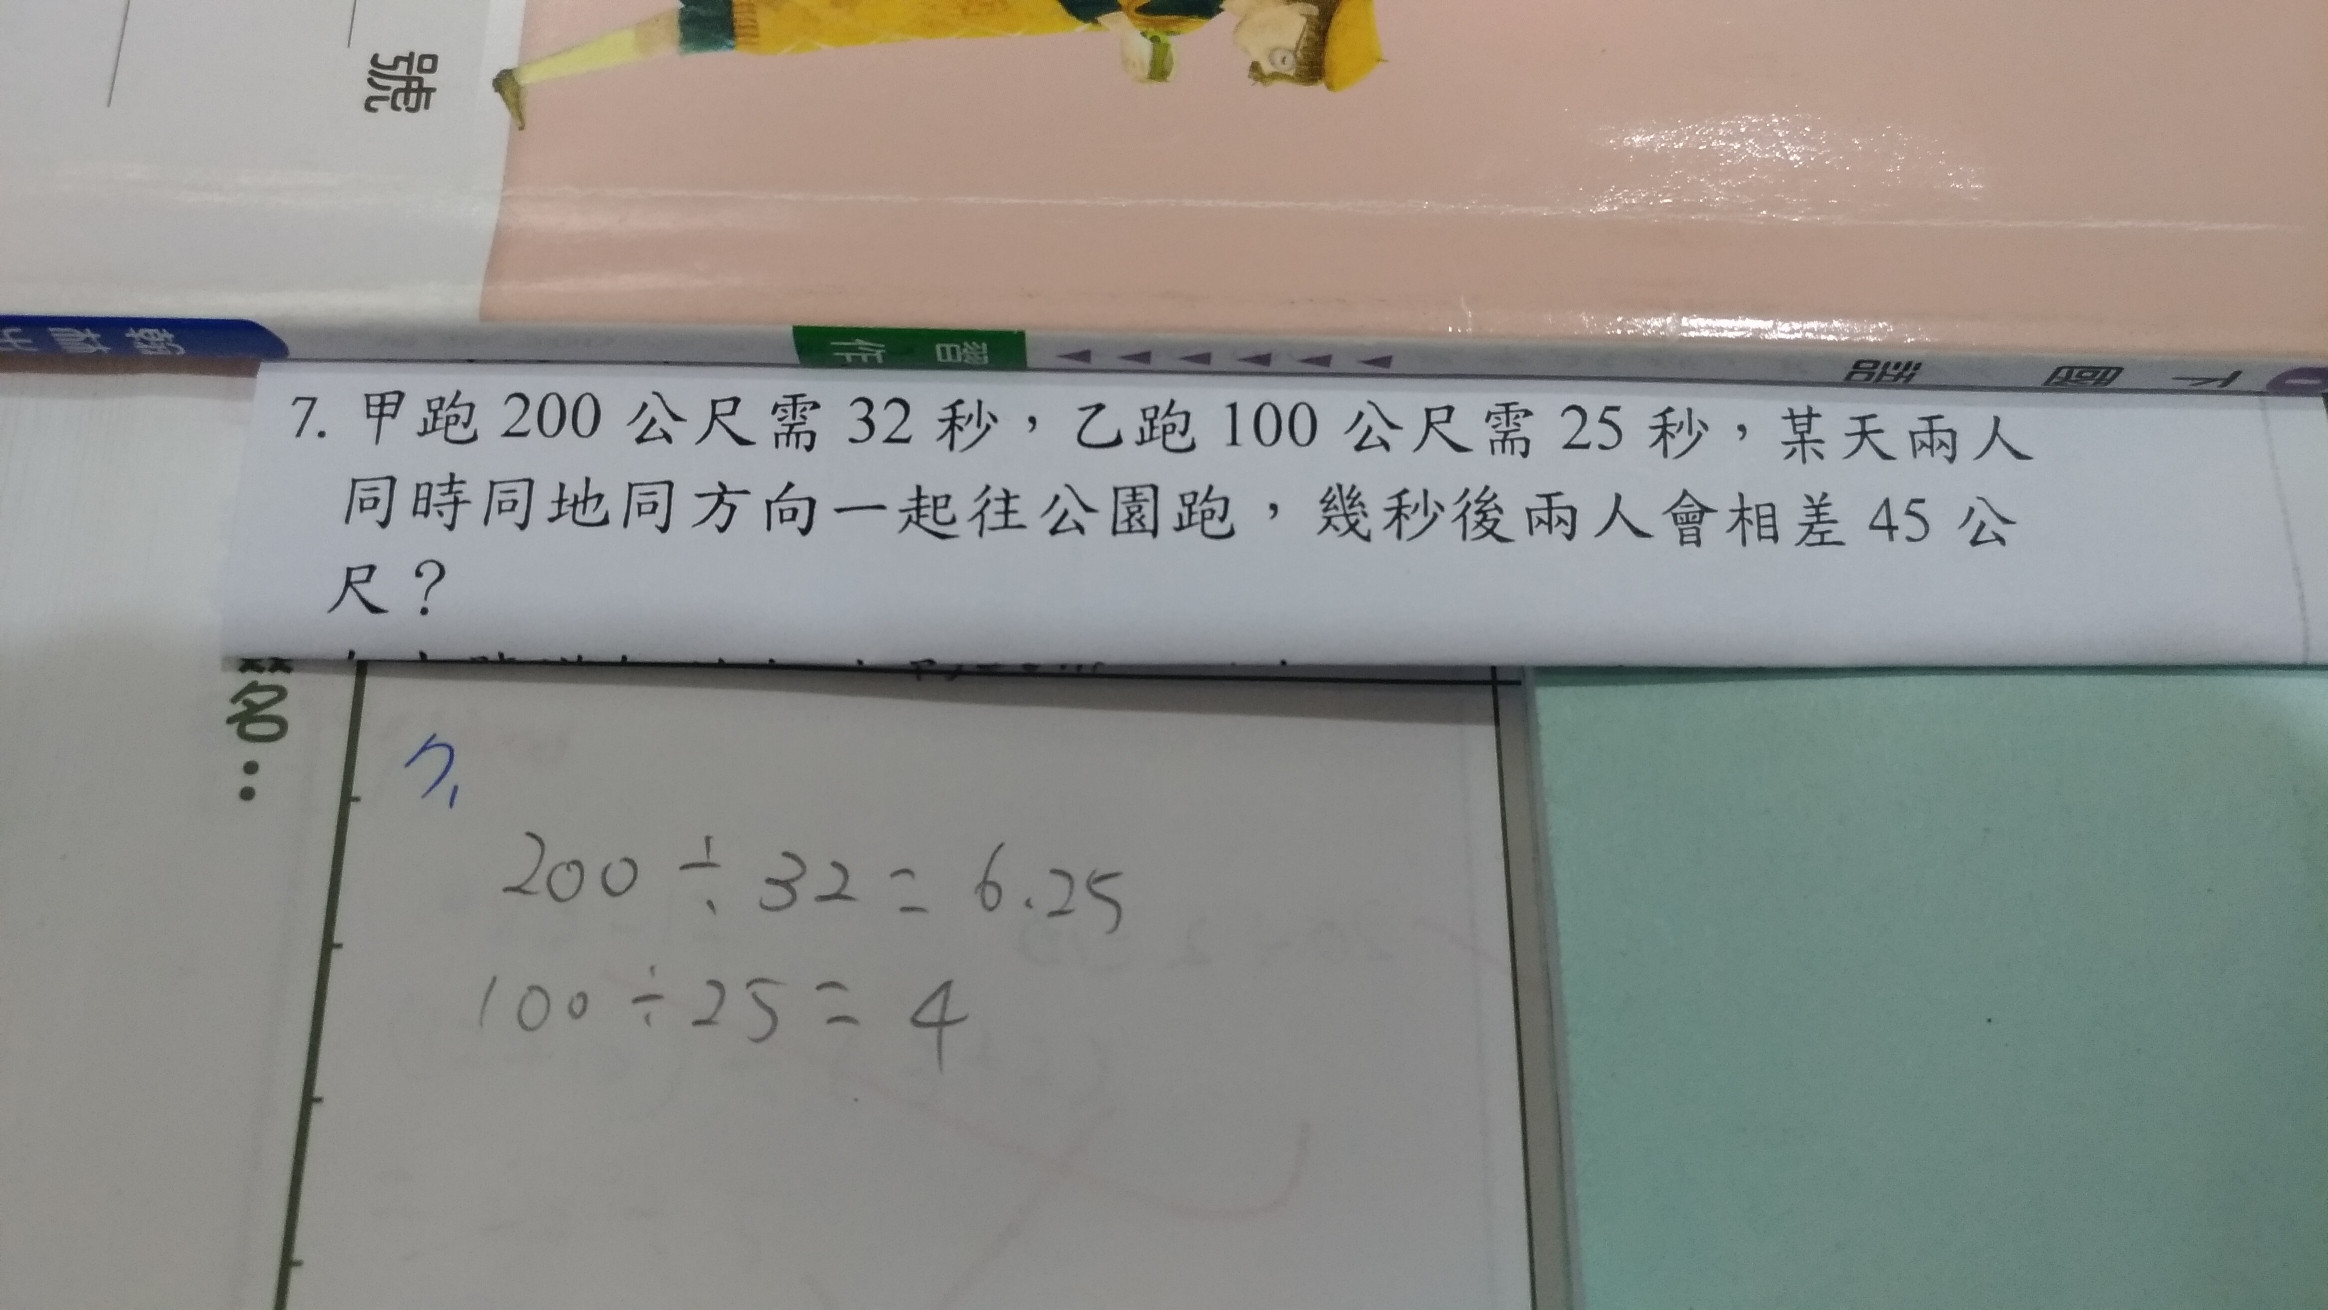 號
習作
下 國
7. 甲跑 200 公尺需 32 秒，乙跑 100 公尺需 25 秒，某天兩人
同時同地同方向一起往公園跑，幾秒後兩人會相差 45 公
尺？
名：
7.
200 ÷ 32 = 6.25
100 ÷ 25 = 4